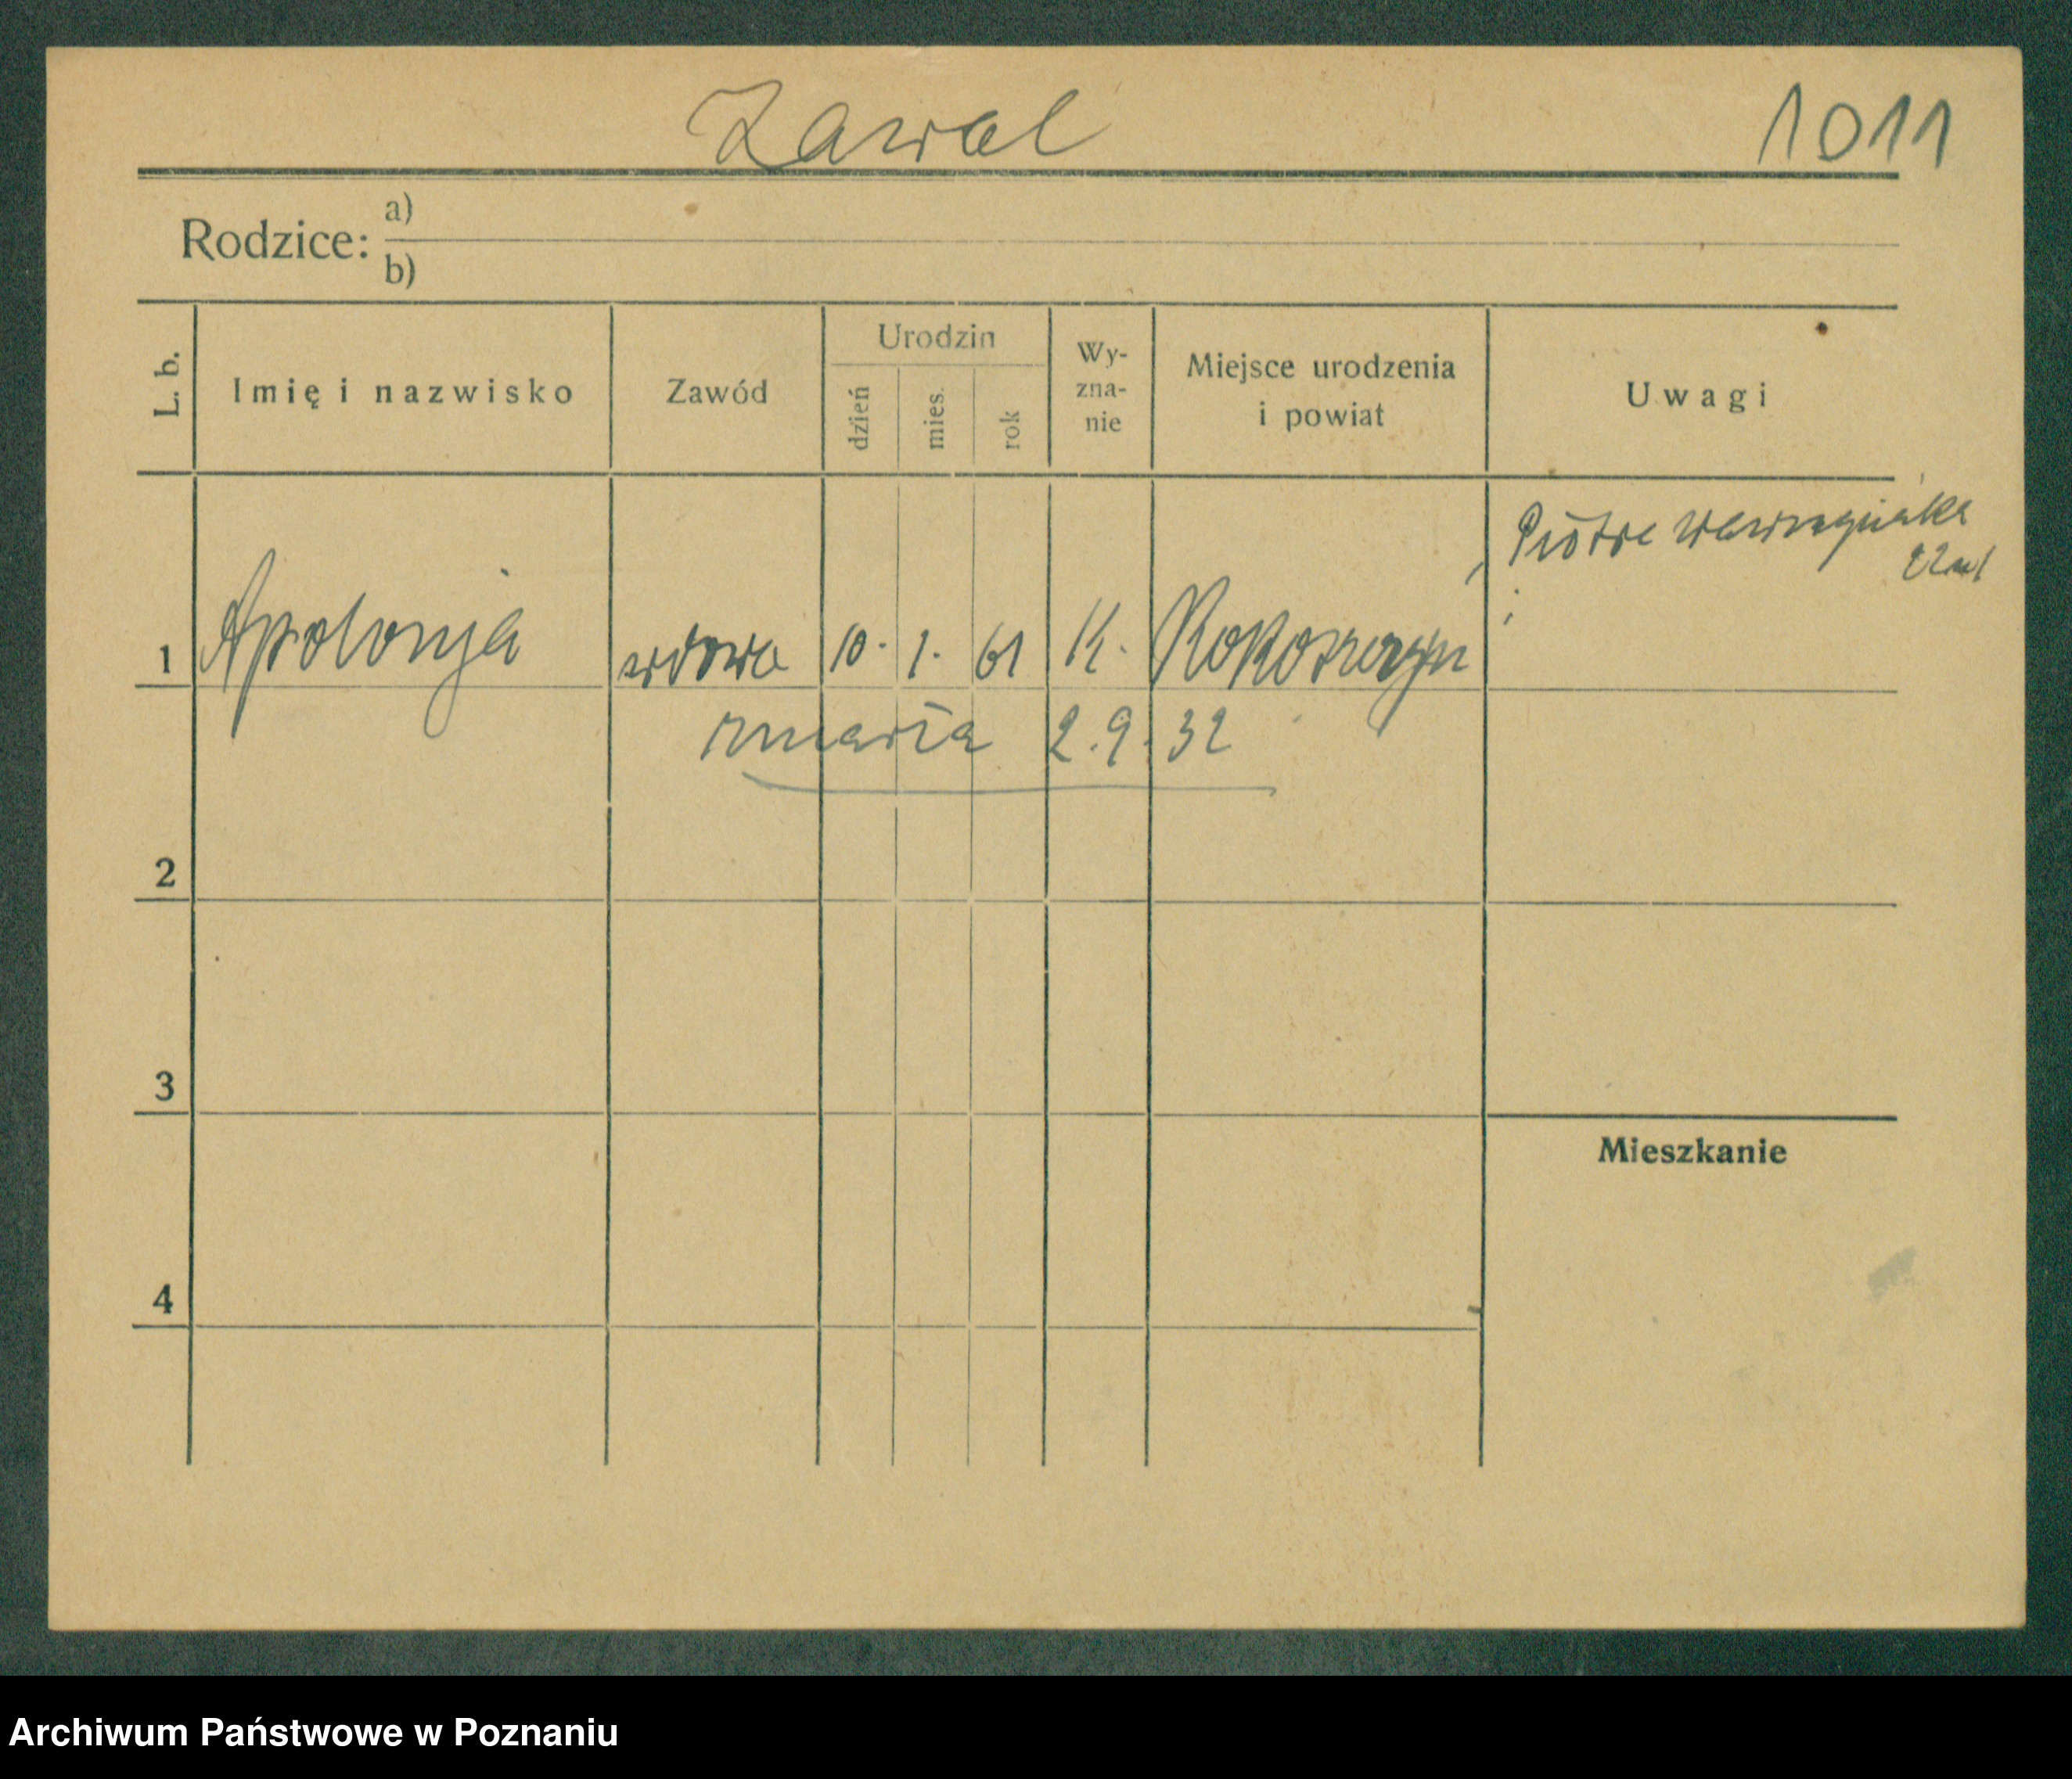 Zawal 1011
Rodzice: a)
b)
L. b. Imię i nazwisko Zawód Urodzin dzień mies. rok Wy-zna-nie Miejsce urodzenia i powiat Uwagi
Piotra Wawrzyniaka
22
1 Apolonja wdowa 10. 1. 61 K. Rokoszyn
zmarła 2.9.32
2
3
Mieszkanie
4
Archiwum Państwowe w Poznaniu